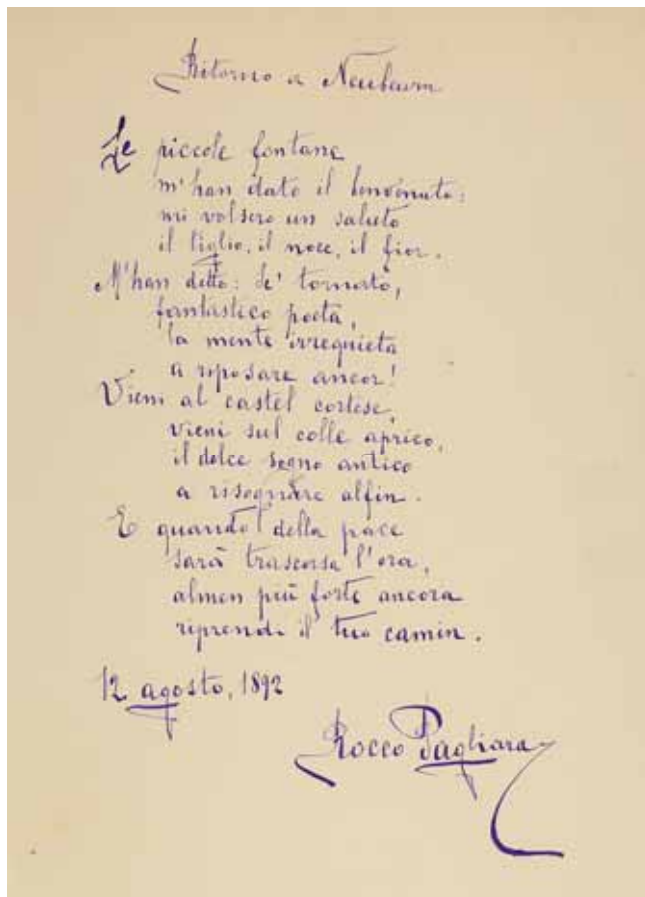 Ritorno a Neubeurn
Le piccole fontane
m'han dato il benvenuto:
mi volsero un saluto
il tiglio, il noce, il fior.
M'han detto: se' tornato,
fantastico poeta,
la mente irrequieta
a riposare ancor!
Vieni al castel cortese,
vieni sul colle aprico,
il dolce sogno antico
a risognare alfin.
E quando della pace
sarà trascorsa l'ora,
almen più forte ancora
riprendi il tuo camin.
12 agosto, 1892
Rocco Pagliara